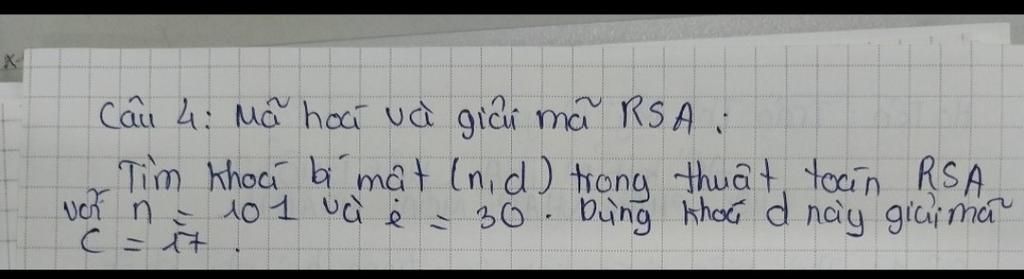 Câu 4: Mã hoá và giải mã RSA :
Tìm khoá bí mật (n,d) trong thuật toán RSA
với n = 101 và e = 30. Dùng khoá d này giải mã
C = 17.